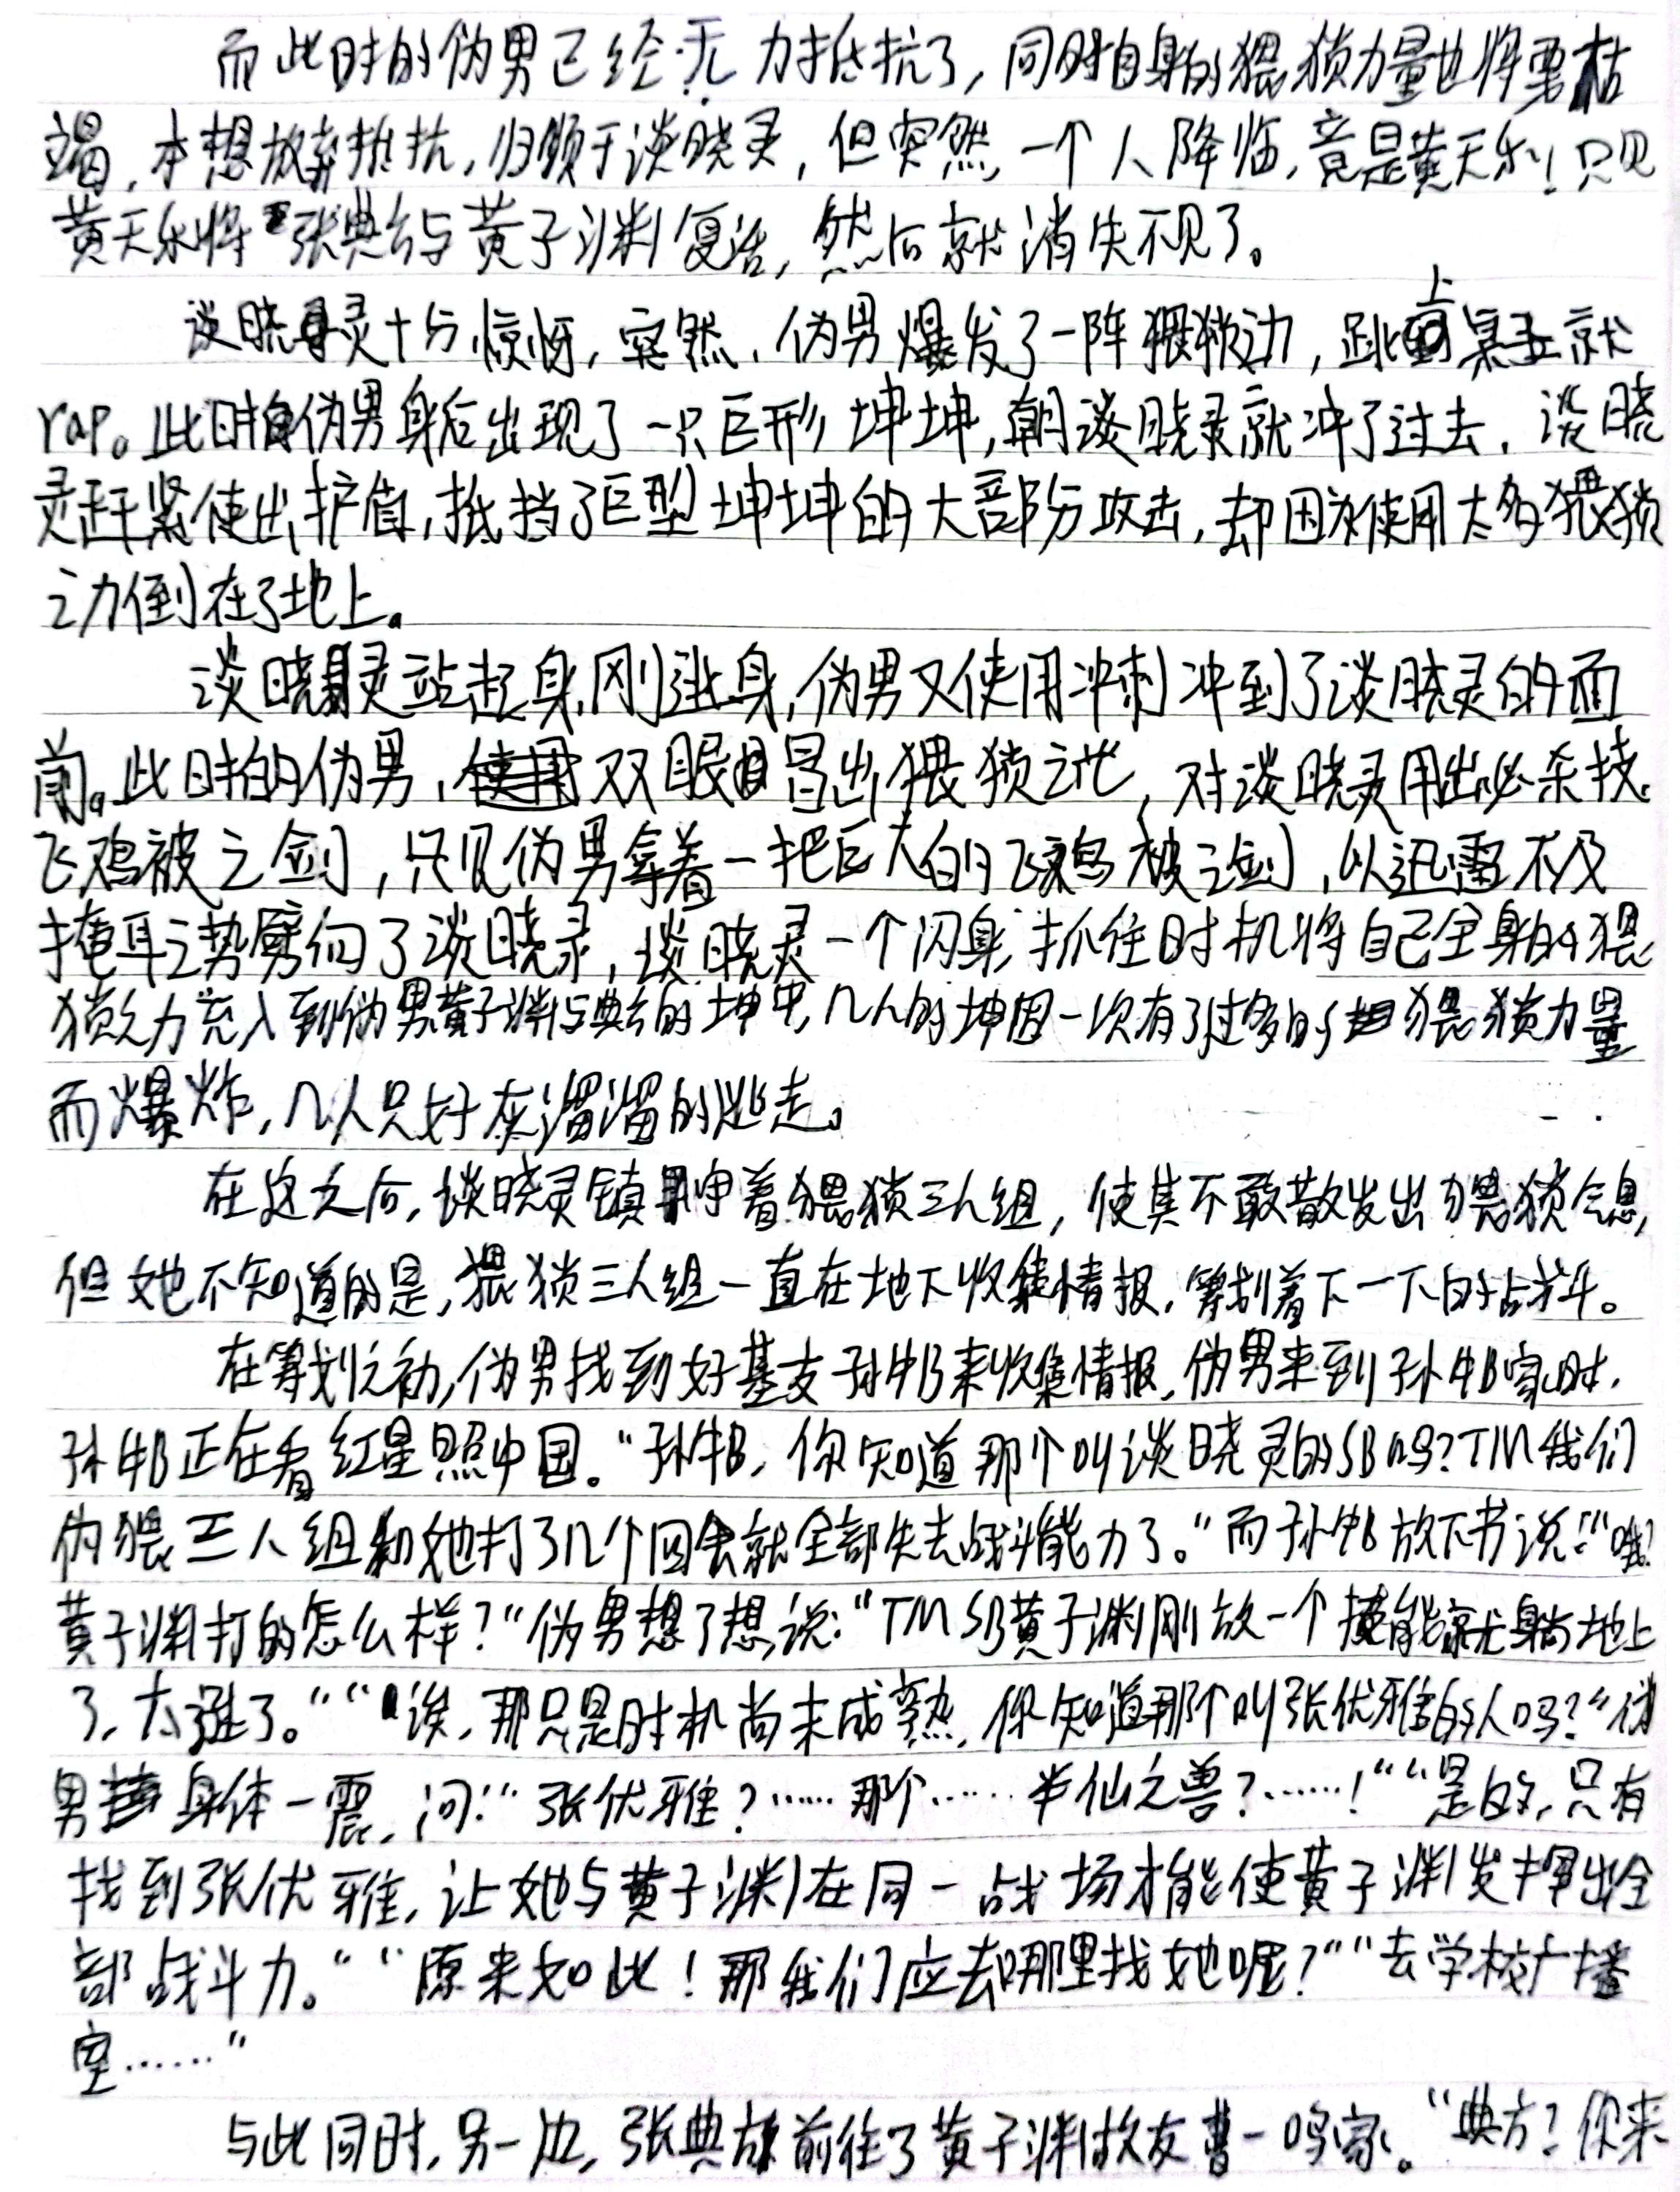 而此时的伪男已经无力抵抗了，同时自身的猥琐力量也将要枯
竭，本想放弃抵抗，归顺于谈晓灵，但突然，一个人降临，竟是黄天乐！只见
黄天乐将张典与黄子渊复活，然后就消失不见了。
谈晓灵十分惊讶，突然，伪男爆发了一阵猥琐之力，跳上桌就
rap。此时伪男身后出现了一只巨形坤坤，朝谈晓灵就冲了过去，谈晓
灵赶紧使出护盾，抵挡了巨型坤坤的大部分攻击，却因为使用太多猥琐
之力倒在了地上。
谈晓灵站起身，刚起身，伪男又使用冲刺冲到了谈晓灵的面
前。此时的伪男，双眼冒出猥琐之光，对谈晓灵用出必杀技，
飞鸡被之剑，只见伪男拿着一把巨大的飞鸡被之剑，以迅雷不及
掩耳之势劈向了谈晓灵，谈晓灵一个闪身，抓住时机将自己全身的猥
琐之力充入到伪男黄子渊与典的坤中，几人的坤因一次有了过多的猥琐力量
而爆炸，几人只好灰溜溜的逃走。
在这之后，谈晓灵镇守着猥琐三人组，使其不敢散发出猥琐气息，
但她不知道的是，猥琐三人组一直在地下收集情报，筹划着下一下的战斗。
在筹划之初，伪男找到好基友孙邺来收集情报，伪男来到孙邺家时，
孙邺正在看红星照中国。“孙邺，你知道那个叫谈晓灵的SB吗？TM我们
伪猥三人组和她打了几个回合就全部失去战斗能力了。”而孙邺放下书说：“哦？
黄子渊打的怎么样？”伪男想了想，说：“TM SB黄子渊刚放一个技能就躺地上
了，太逊了。”“诶，那只是时机尚未成熟，你知道那个叫张优雅的人吗？”伪
男身体一震，问：“张优雅？……那个……半仙之兽？……！”“是的，只有
找到张优雅，让她与黄子渊在同一战场才能使黄子渊发挥出全
部战斗力。”“原来如此！那我们应去哪里找她呢？”“去学校广播
室……”
与此同时，另一边，张典前往了黄子渊故友曹一鸣家。“典方？你来